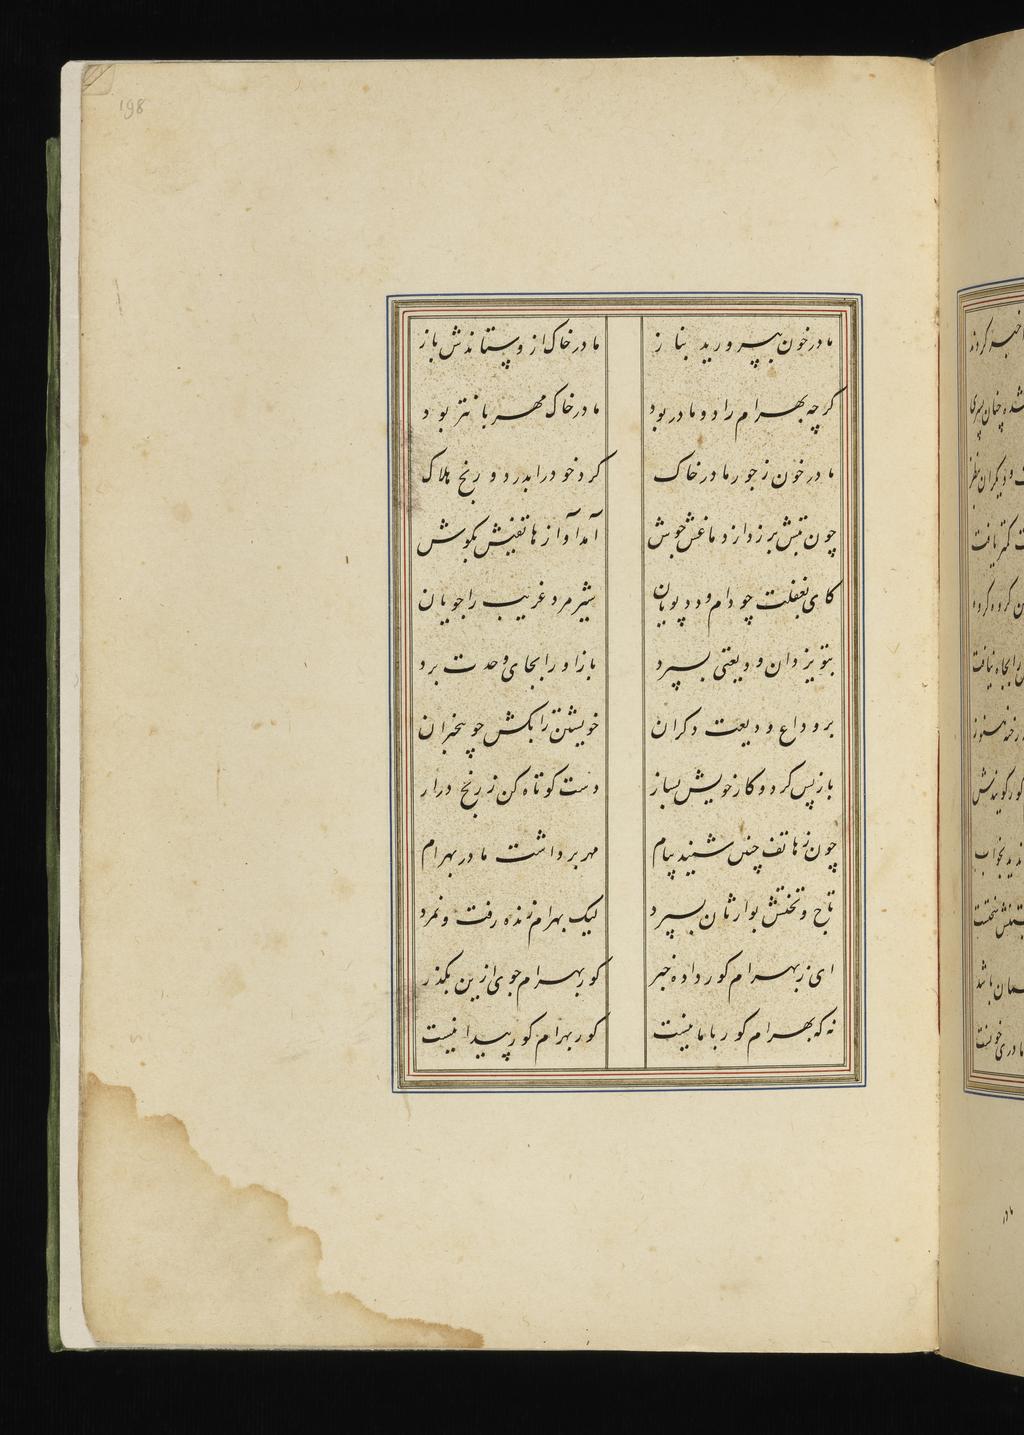 198
مادر خون بپرورید بناز مادر خاک ازو ستاندش باز
کرچه بهرام را دو مادر بود مادر خاک مهربانتر بود
مادر خون ز جور مادر خاک کرد خود را بدرد و رنج هلاک
چون تبش برزد از دماغش جوش آمد آواز هاتفیش بکوش
کای بغفلت چو دام و دد پویان شیر مرد غریب را جویان
بتو یزدان ودیعتی بسپرد باز او را بجای وحدت برد
بر وداع ودیعت دکران خویشتن را بکش چو بیخبران
باز پس کرد و کار خویش بساز دست کوتاه کن ز رنج دراز
چون ز هاتف چنین شنید پیام مهر برداشت مادر بهرام
تاج و تختش بوارثان بسپرد لیک بهرام زنده رفت و نمرد
ای ز بهرام کور داده خبر کور بهرام جوی ازین بکذر
نه که بهرام کور با ما نیست کور بهرام کور پیدا نیست